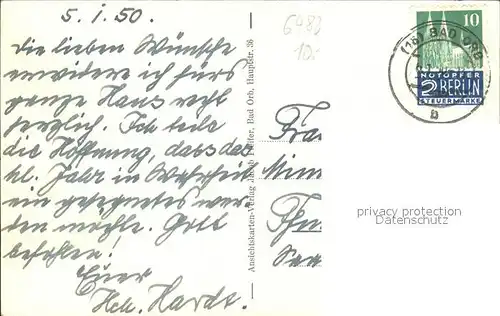 5. I. 50.
die lieben Wünsche
erwidere ich fürs
ganze Haus recht
herzlich. Ich teile
die Hoffnung, dass das
hl. Jahr in Wahrheit
ein gesegnetes wer
den möchte. Gott
befohlen!
Euer
Hch. Hardt.
Ansichtskarten-Verlag Pfeifer, Bad Orb, Hauptstr. 36
6483
10.-
Frau
Pfu
(16) BAD ORB
b
10
NOTOPFER
2 BERLIN
STEUERMARKE
privacy protection
Datenschutz